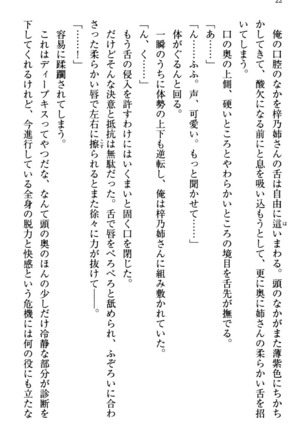 22
俺の口腔のなかを梓乃姉さんの舌は自由に這いまわる。頭のなかが薄紫色にちかち
かしてきて、酸欠になる前にと息を吸い込もうとして、更に奥に姉さんの柔らかい舌を招
いてしまう。
口の奥の上側、硬いところとやわらかいところの境目を舌先が撫でる。
「あ……」
「ん……ふふ。声、可愛い。もっと聞かせて……」
体がぐるんと回る。
一瞬のうちに体勢の上下も逆転し、俺は梓乃姉さんに組み敷かれていた。
「ん、く……」
もう舌の侵入を許すわけにはいくまいと固く口を閉じた。
だけどそんな決意と抵抗は無駄だった。舌で唇をべろべろと舐められ、ふぞろいに合わ
さった柔らかい唇で左右に擦られるとまた徐々に力が抜けて――。
容易に蹂躙されてしまう。
「……！」
これはディープキスってやつだな、なんて頭の奥のほんの少しだけ冷静な部分が診断を
下してくれるけれど、今進行している全身の脱力と快感という危機には何の役にも立たな